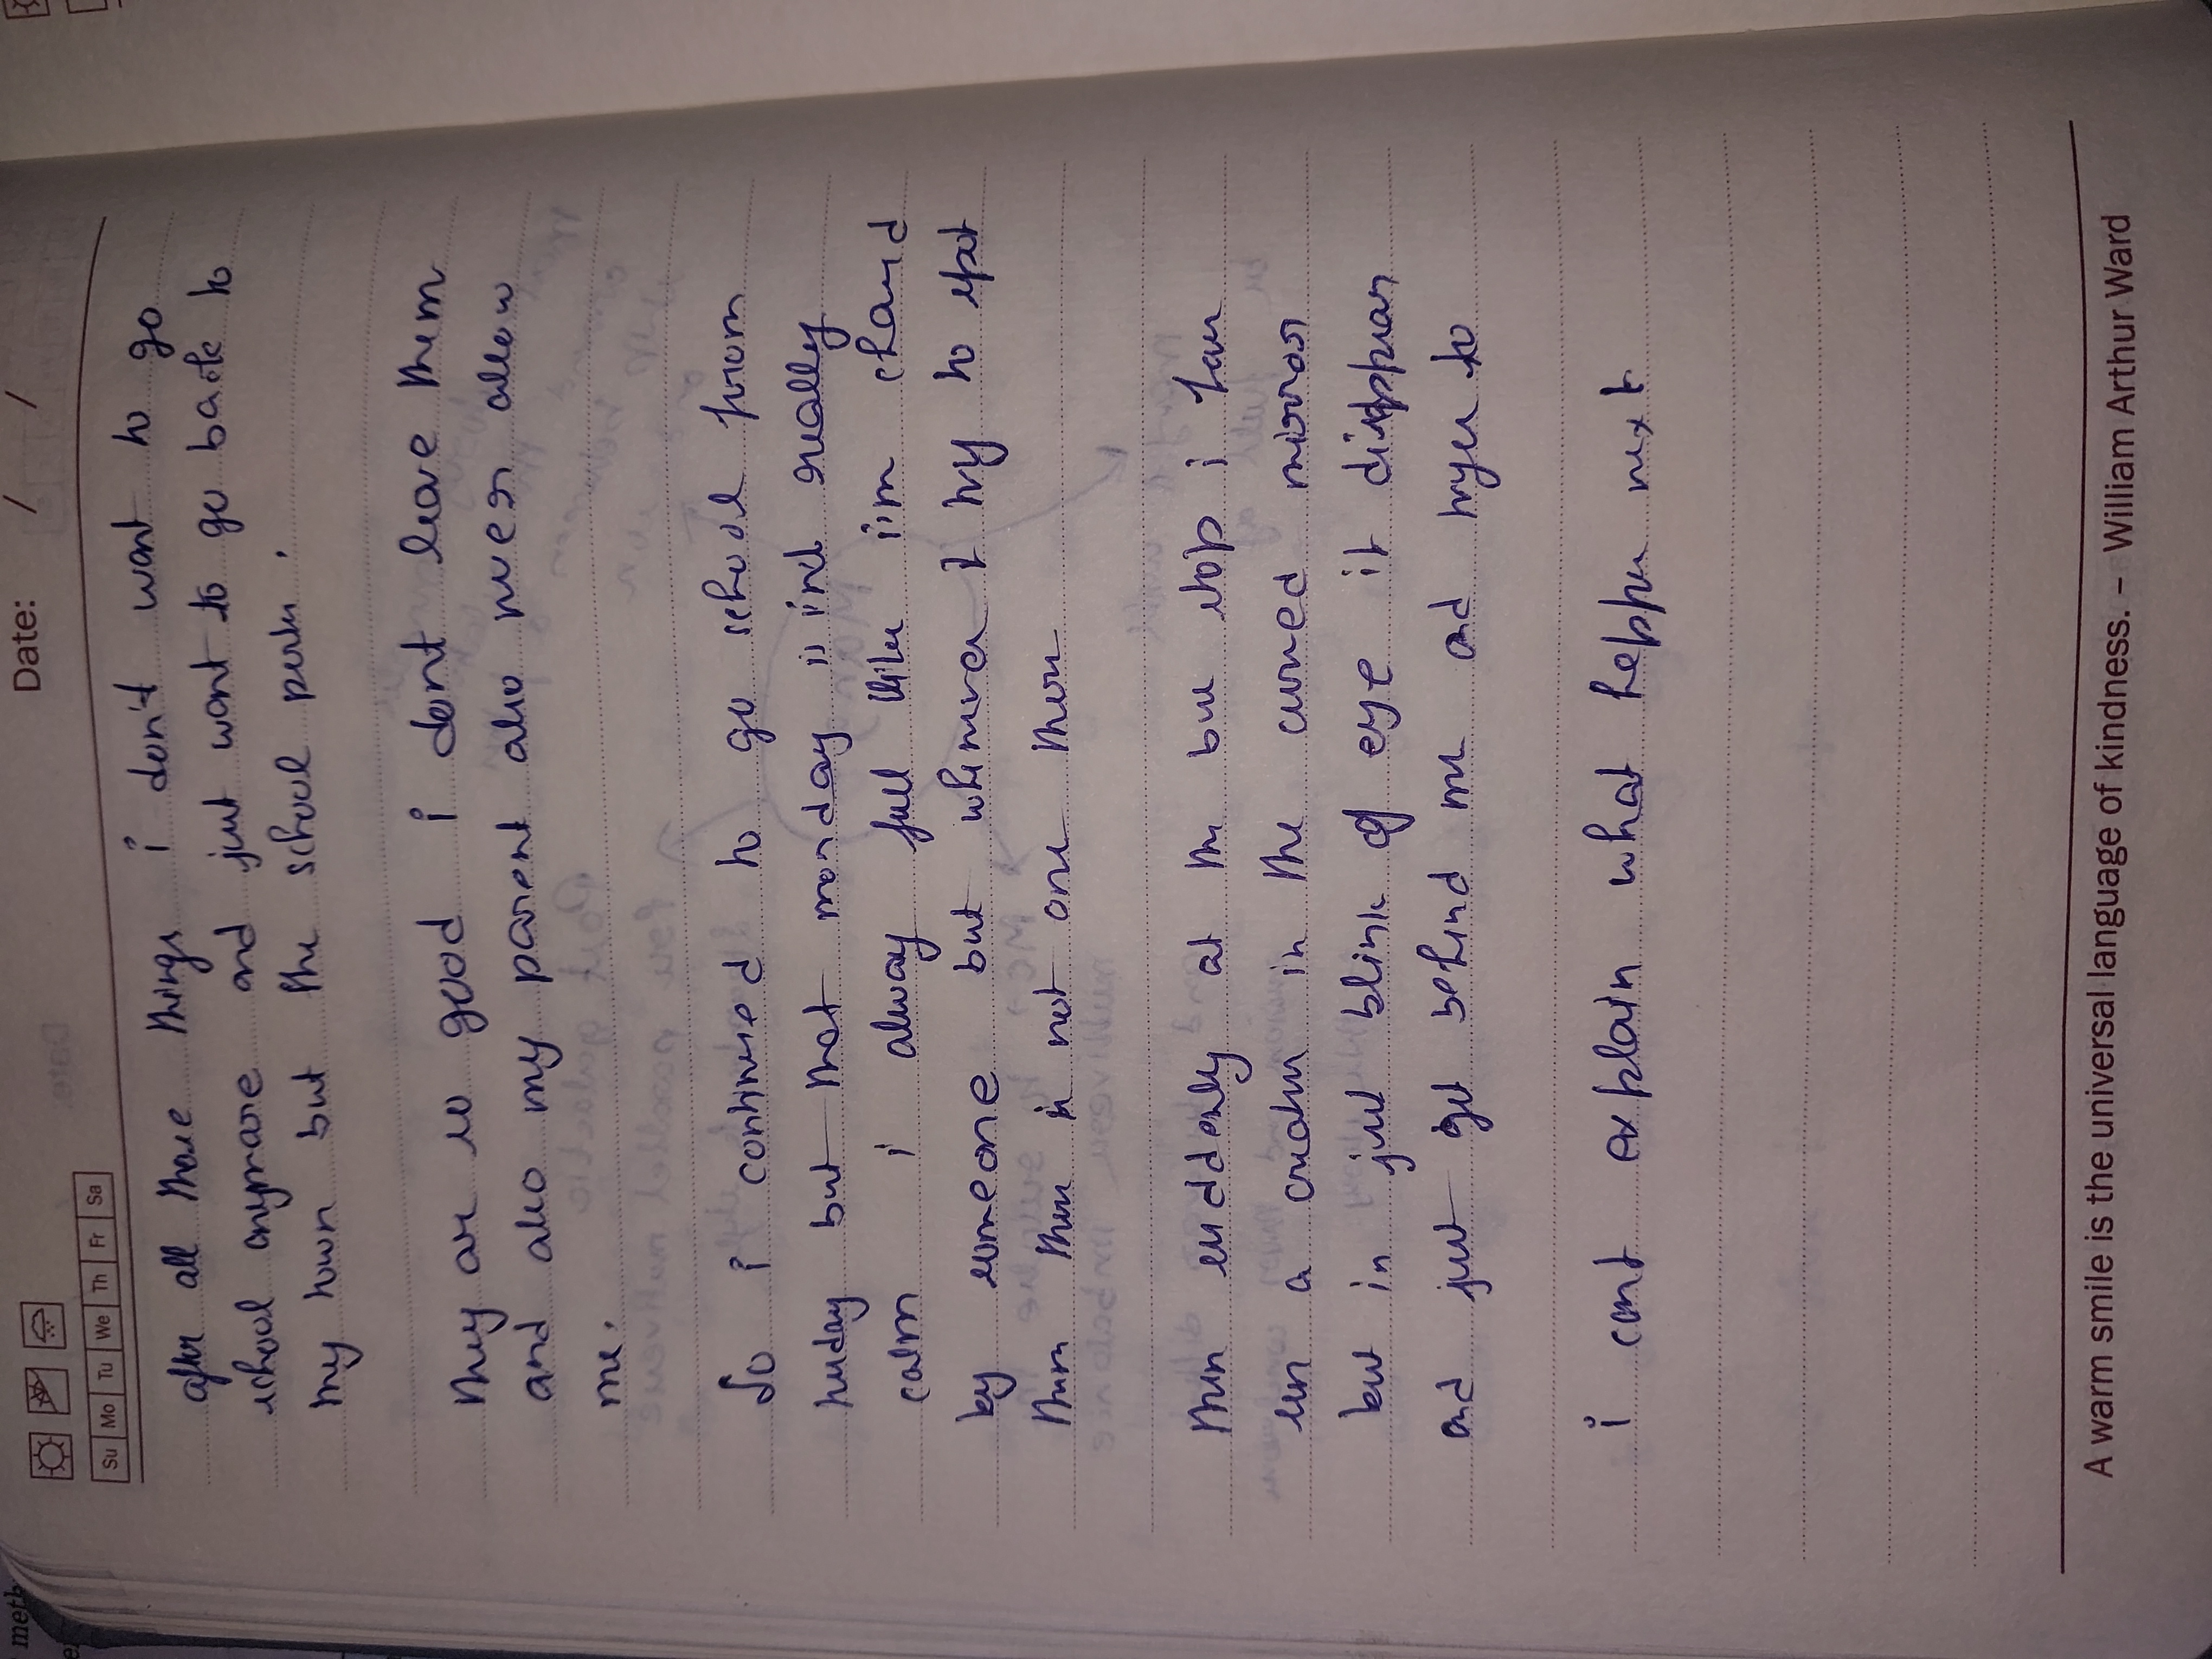 Date: / /
Su Mo Tu We Th Fr Sa
after all those things i don't want to go
school anymore and just want to go back to
my town but the school
they are so good i dont leave them
and also my parent also never allow
me.
So i continued to go school from
but that monday is really
calm i alway full like i'm
by someone but whenever I try to spot
them there is not one there
then suddenly at the bus stop i
seen a creature in the curved mirror
but in just blink of eye it disappear
and just get behind me and tryes to
i cant explain what next
A warm smile is the universal language of kindness. – William Arthur Ward